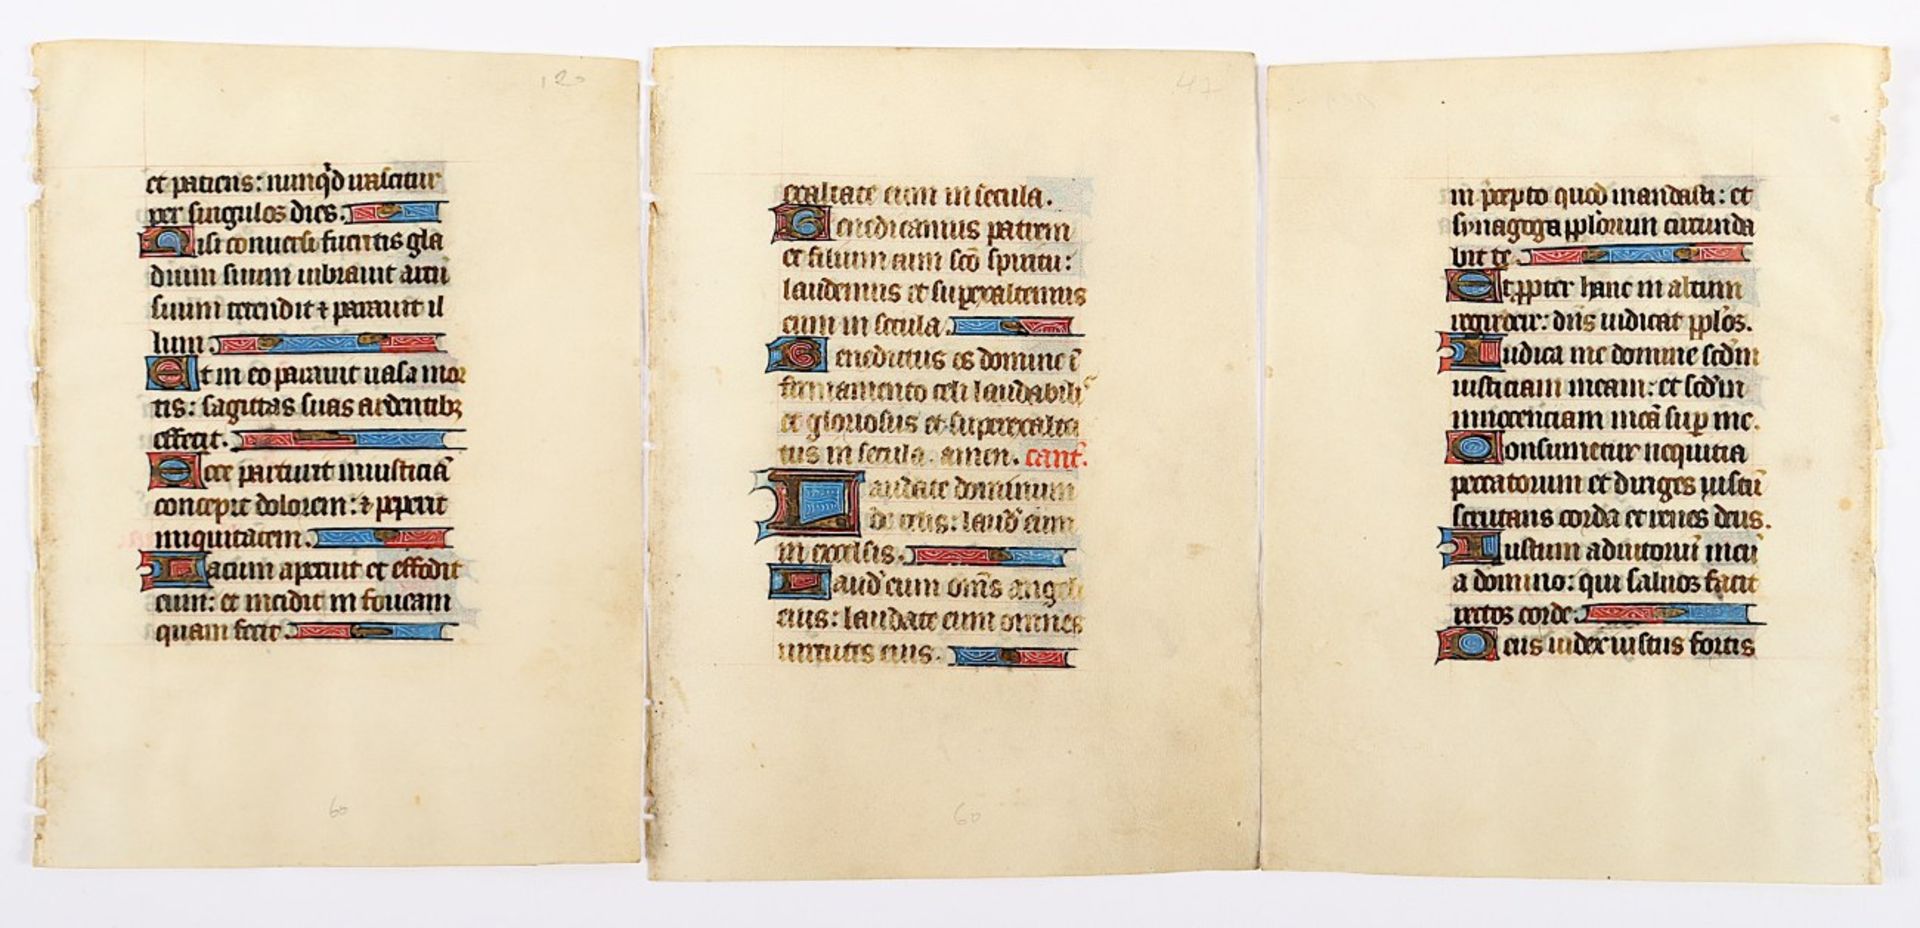 120
et paciens: nunqd irascitur
per singulos dies.
Nisi conuersi fueritis gla
dium suum uibrauit arcu
suum tetendit et parauit il
lum.
Et in eo parauit uasa mor
tis: sagittas suas ardentibz
effecit.
Ecce parturit iniusticia
concepit dolorem: et peperit
iniquitatem.
Lacum aperuit et effodit
eum: et incidit in foueam
quam fecit.
60
47
exaltate eum in secula.
Benedicamus patrem
et filium cum sco spiritu:
laudemus et superexaltemus
eum in secula.
Benedictus es domine i
firmamento celi laudabilis
et gloriosus et superexalta
tus in secula. amen. cant.
Laudate dominum
de celis: laud eum
in excelsis.
Laud eum oms angeli
eius: laudate eum omnes
uirtutes eius.
60
in pcepto quod mandasti: et
synagoga pplorum circunda
bit te.
Et ppter hanc in altum
regredere: dns iudicat pplos.
Iudica me domine scdm
iusticiam meam: et scdm
innocenciam mea sup me.
Consumetur nequitia
peccatorum et diriges iustu
scrutans corda et renes deus.
Iustum adiutoriu meu
a domino: qui saluos facit
rectos corde.
Deus iudex iustus fortis